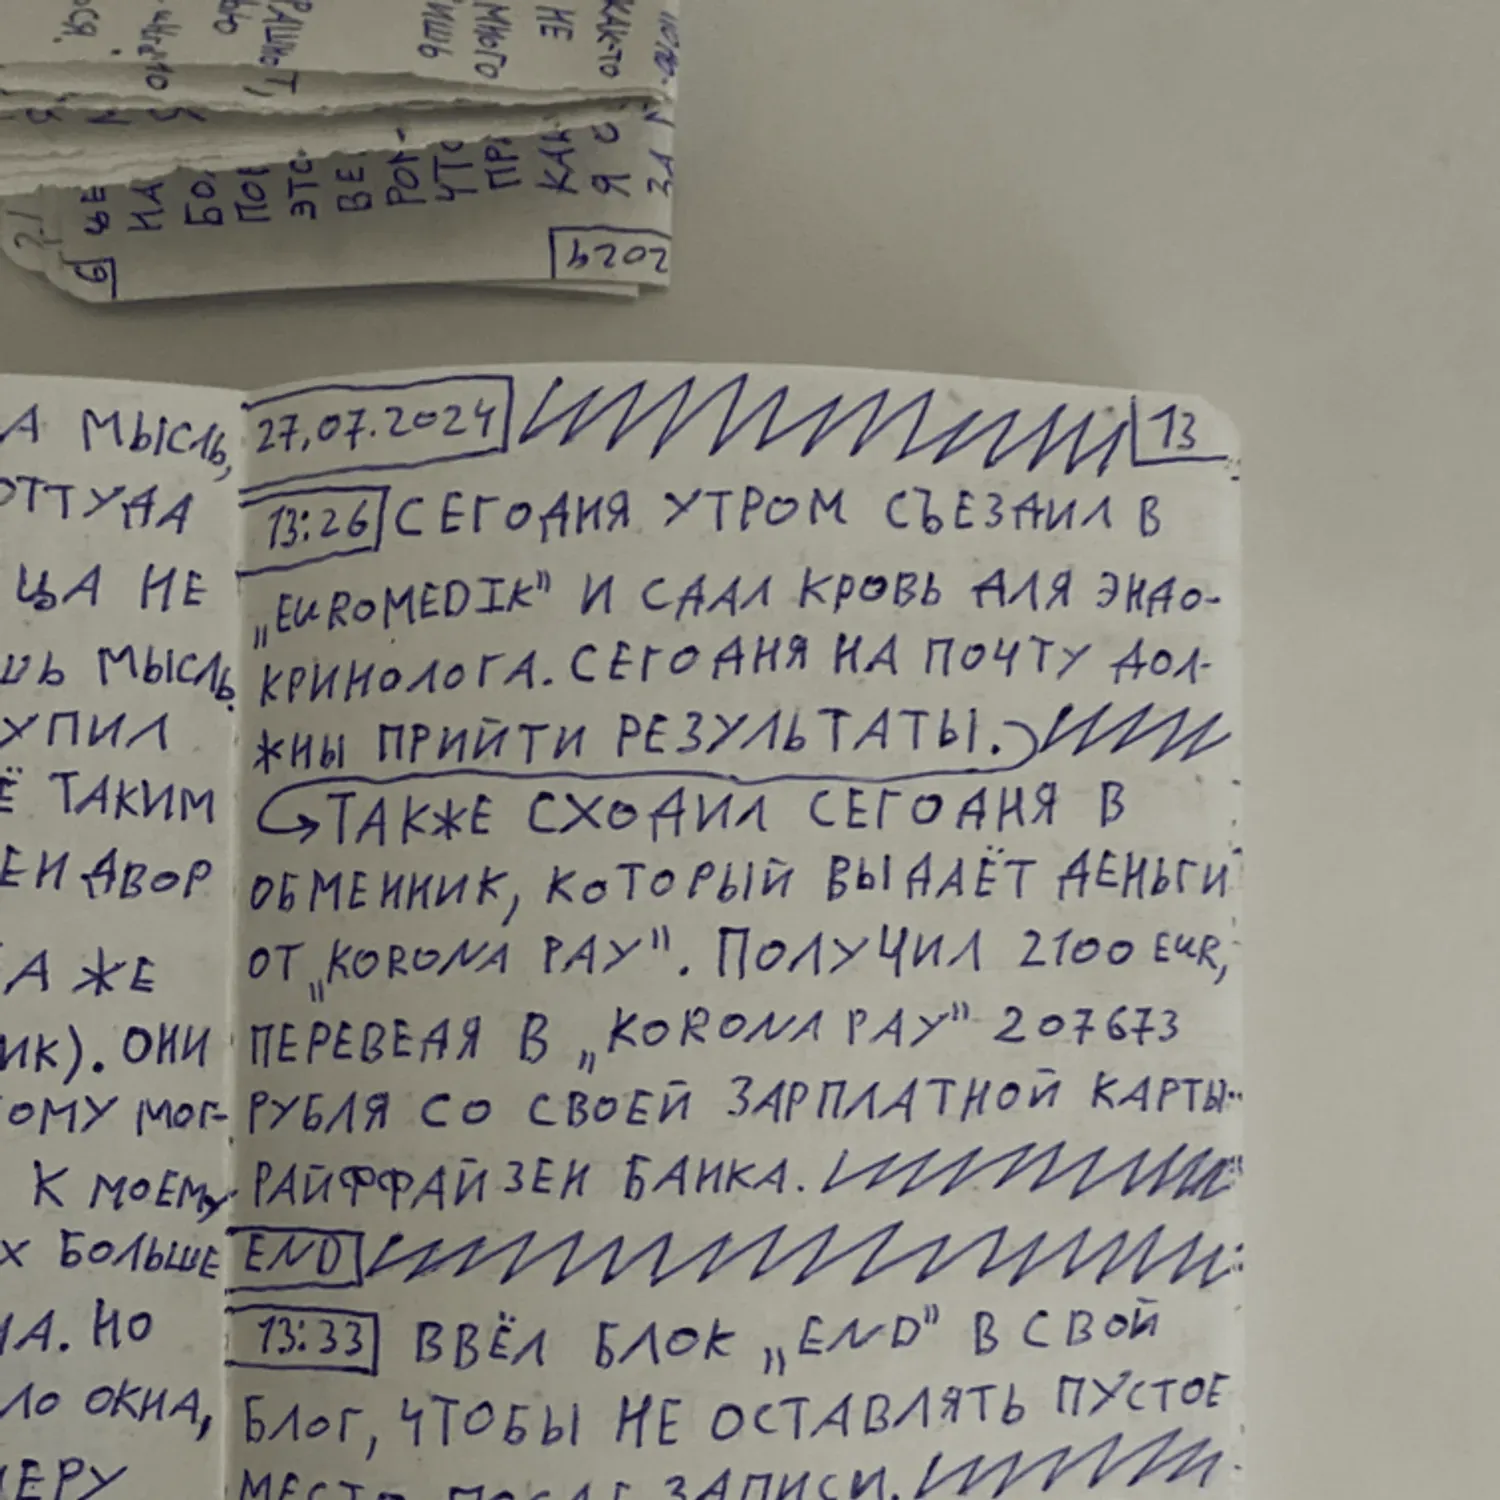 2024
6
А МЫСЛЬ,
ОТТУДА
ЦА НЕ
МЫСЛЬ.
УПИЛ
Ё ТАКИМ
ЕН ДВОР
А ЖЕ
ИК). ОНИ
ОМУ МОГ-
К МОЕМУ
Х БОЛЬШЕ
НО
ЛО ОКНА,
27.07.2024 13
13:26 СЕГОДНЯ УТРОМ СЪЕЗДИЛ В
„EUROMEDIK" И СДАЛ КРОВЬ ДЛЯ ЭНДО-
КРИНОЛОГА. СЕГОДНЯ НА ПОЧТУ ДОЛ-
ЖНЫ ПРИЙТИ РЕЗУЛЬТАТЫ.
ТАКЖЕ СХОДИЛ СЕГОДНЯ В
ОБМЕННИК, КОТОРЫЙ ВЫДАЁТ ДЕНЬГИ
ОТ „KORONA PAY". ПОЛУЧИЛ 2100 EUR,
ПЕРЕВЕДЯ В „KORONA PAY" 207673
РУБЛЯ СО СВОЕЙ ЗАРПЛАТНОЙ КАРТЫ
РАЙФФАЙЗЕН БАНКА.
END
13:33 ВВЁЛ БЛОК „END" В СВОЙ
БЛОГ, ЧТОБЫ НЕ ОСТАВЛЯТЬ ПУСТОЕ
МЕСТО ПОСЛЕ ЗАПИСИ.